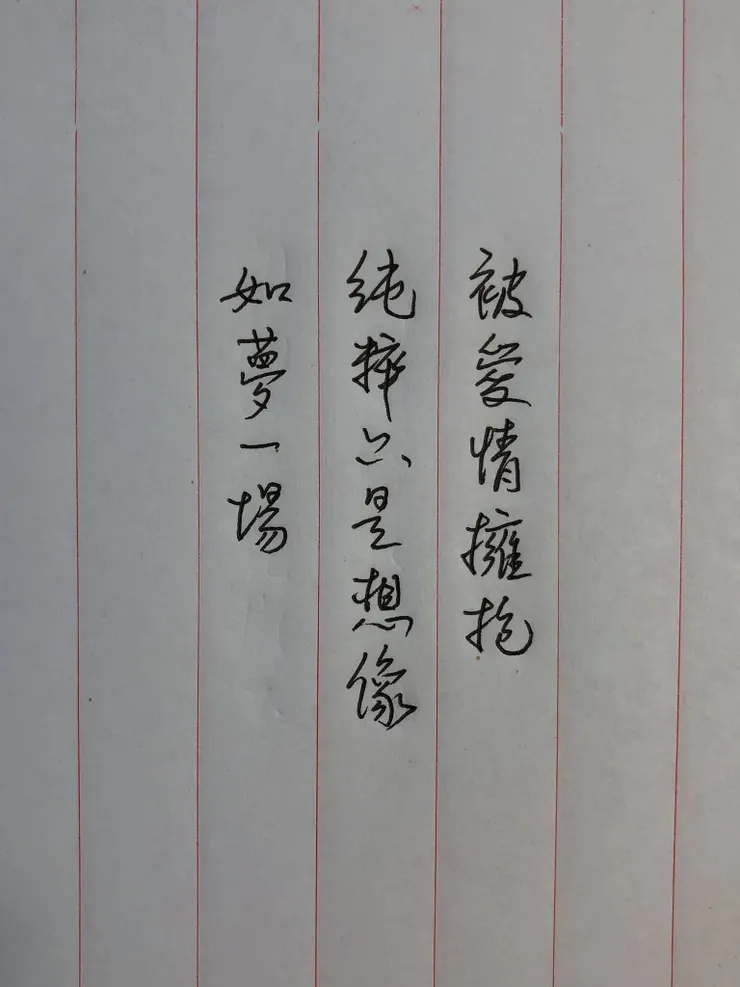 被愛情擁抱
純粹只是想像
如夢一場